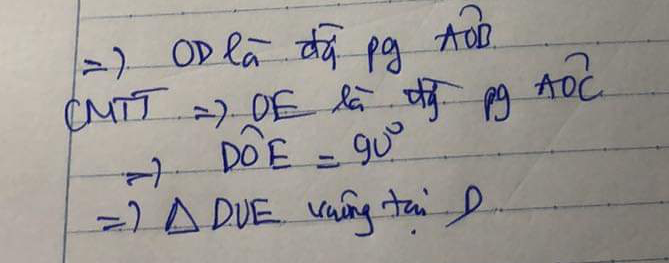 =) OD là đg pg AÔB
CMTT =) OE là đg pg AÔC
=) DÔE = 90°
=) Δ DOE vuông tại D